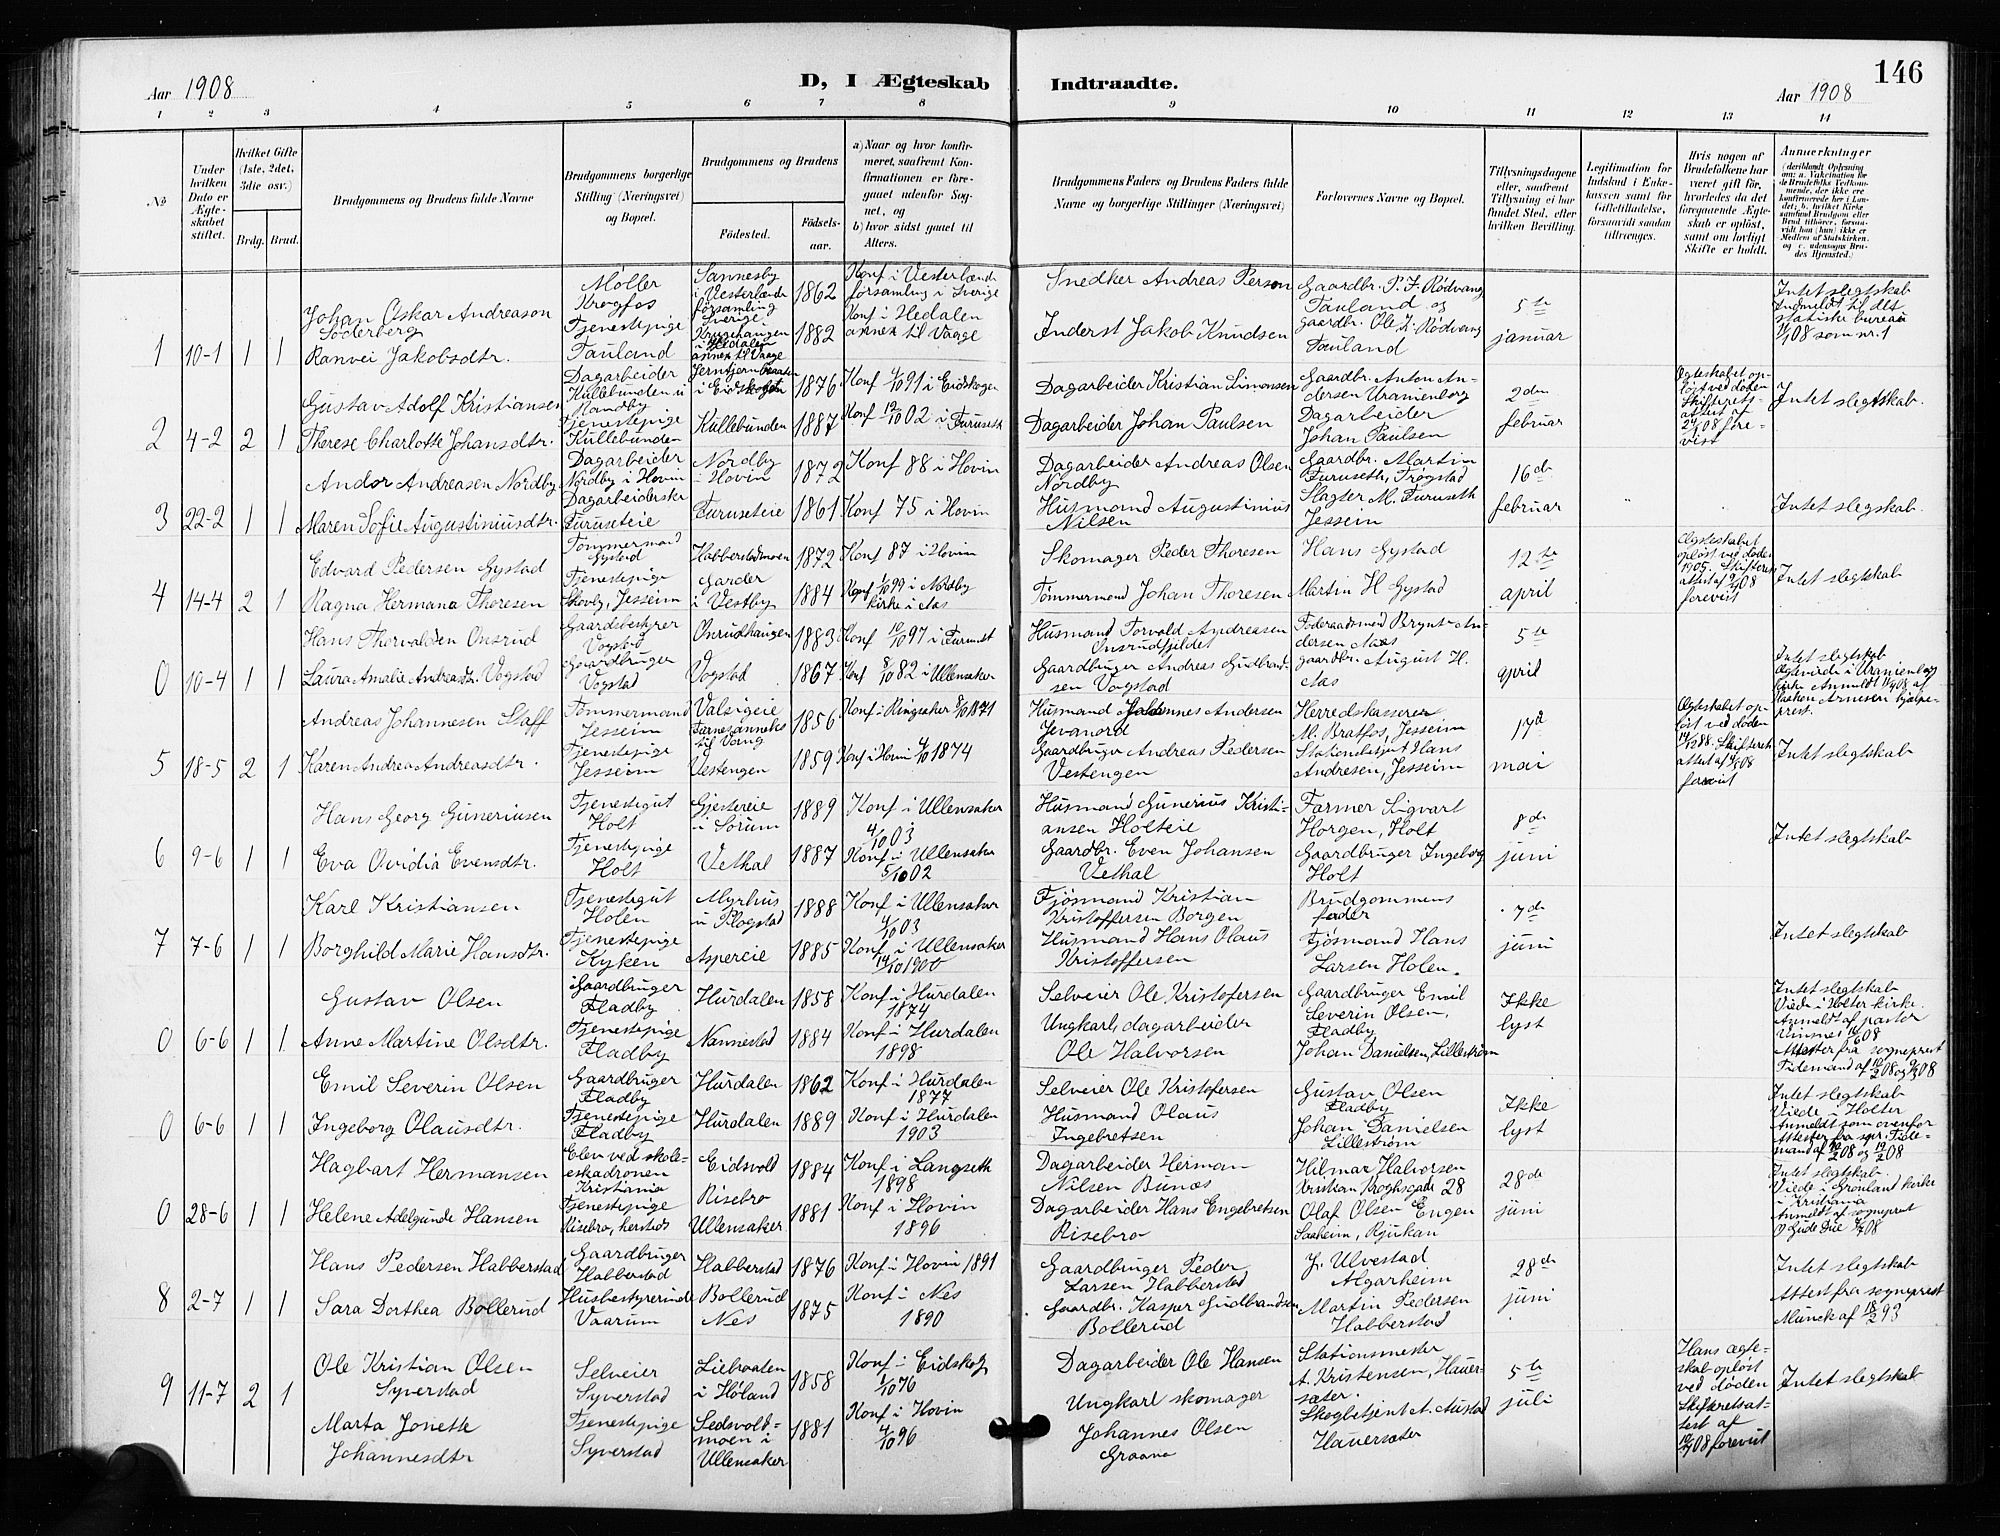 Aar 1908
D, I Ægteskab
Indtraadte.
Aar 1908
146
1 2 3 4 5 6 7 8 9 10 11 12 13 14
No
Under hvilken Dato er Ægteskabet stiftet.
Hvilket Gifte (1ste, 2det, 3die osv.)
Brdg. Brud.
Brudgommens og Brudens fulde Navne
Brudgommens borgerlige Stilling (Næringsvei) og Bopæl.
Brudgommens og Brudens
Fødested.
Fødsels-aar.
a) Naar og hvor konfirmeret, saafremt Konfirmationen er foregaaet udenfor Sognet, og
b) hvor sidst gaaet til Alters.
Brudgommens Faders og Brudens Faders fulde Navne og borgerlige Stillinger (Næringsvei)
Forlovernes Navne og Bopæl.
Tillysningsdagene eller, saafremt Tillysning ei har fundet Sted, efter hvilken Bevilling.
Legitimation for Indskud i Enkekassen samt for Giftetilladelse, forsaavidt saadan tiltrænges.
Hvis nogen af Brudefolkene har været gift før, hvorledes da det foregaaende Ægteskab er opløst, samt om lovligt Skifte er holdt.
Anmerkninger
1 10-1 1 1
Johan Oskar Andreason Söderberg
Møller Krogfos
Sannesby i Vesterlænda församling Sverige
1862
Konf i Vesterlænda församling i Sverige
Snedker Andreas Person
Gaardbr. P. F. Rødvang Tauland og
5te januar
Intet slegtskab Indmeldt til det statiske bureau som nr. 1
Ranvei Jakobsdtr.
Tjenestepige Tauland
i Hedalen annex til Vaage
1882
Konf i Hedalen annex til Vaage
Inderst Jakob Knudsen
gaardbr. Ole L. Rødvang Tauland
2 4-2 2 1
Gustav Adolf Kristiansen
Dagarbeider Kullebunden u Mandby
i Eidskogen
1876
Konf 4/10 91 i Eidskogen
Dagarbeider Kristian Simonsen
Gaardbr. Anton Andersen Uranienborg
2den februar
Egteskabet opløst ved døden Skifteretsattest af forevist
Intet slegtskab.
Therese Charlotte Johansdtr.
Tjenestepige Kullebunden
Kullebunden
1887
Konf 12/10 02 i Furuseth
Dagarbeider Johan Paulsen
Dagarbeider Johan Paulsen
3 22-2 1 1
Andor Andreasen Nordby
Dagarbeider Nordby i Hovin
Nordby i Hovin
1872
Konf 88 i Hovin
Dagarbeider Andreas Olsen Nordby
Gaardbr. Martin Furuseth, Trøgstad
16de februar
Maren Sofie Augustiniusdtr.
Dagarbeiderske Furuseteie
Furuseteie
1861
Konf 75 i Hovin
Husmand Augustinius Nilsen
Slagter M. Furuseth Jessein
Intet slegskab.
4 14-4 2 1
Edvard Pedersen Gystad
Tømmermand Gystad
Habberstadmoen
1872
Konf 87 i Hovin
Skomager Peder Thoresen
Hans Gystad
12te april
Egteskabet opløst ved døden 1905. Skifterets attest af forevist
Intet slegtskab
Ragna Hermana Thoresen
Tjenestepige Skovly, Jesseim
Garder i Vestby
1884
Konf 1/10 99 i Nordby kirke i Aas
Tømmermand Johan Thoresen
Martin H Gystad
0 10-4 1 1
Hans Thorvaldsen Onsrud
Gaardsbestyrer Vogstad
Onsrudhaugen
1883
Konf 10/10 97 i Furuset
Husmand Torvald Andreasen Onsrudfjeldet
Føderaadsmand Brynt Andersen Aas
5te april
Laura Amalie Andreasdtr. Vogstad
Gaardbruger Vogstad
Vogstad
1867
Konf 8/10 82 i Ullensaker
Gaardbruger Andreas Gudbrandsen Vogstad
gaardbr. August H. Aas
Intet slegskab Egteviede i Uranienborg kirke Anmeldt af Haakon Arnesen hjælpeprest.
5 18-5 2 1
Andreas Johannesen Staff
Tømmermand Jesseim
Valsigeie Furnes annex til Vang
1856
Konf i Ringsaker 8/10 1871
Husmand Johannes Andersen Jevanord
Herredskasserer M. Bratfos, Jesseim
17d mai
Egteskabet opløst ved døden 14/12 88. Skifterets attest af forevist
Intet slegtskab
Karen Andrea Andreasdtr.
Tjenestepige Jesseim
Vestengen
1859
Konf i Hovin 4/10 1874
Gaardbruger Andreas Pedersen Vestengen
Stationsbetjent Hans Andresen, Jesseim
6 9-6 1 1
Hans Georg Guneriusen
Tjenestegut Holt
Gjestereie i Sørum
1889
Konf i Ullensaker 4/10 03
Husmand Gunerius Kristiansen Holteie
Farmer Sigvart Horgen, Holt
8de juni
Intet slegtskab
Eva Ovidia Evensdtr.
Tjenestepige Holt
Vethal
1887
Konf i Ullensaker 5/10 02
Gaardbr. Even Johansen Vethal
Gaardbruger Ingeborg Holt
7 7-6 1 1
Karl Kristiansen
Tjenestegut Holen
Myrhus u Plogstad
1888
Konf i Ullensaker 4/10 03
Fjøsmand Kristian Kristoffersen Borgen
Brudgommens fader
7de juni
Intet slegtskab
Borghild Marie Hansdtr.
Tjenestepige Kyken
Aspereie
1885
Konf i Ullensaker 14/10 1900
Husmand Hans Olaus Kristoffersen
Fjøsmand Hans Larsen Holen.
0 6-6 1 1
Gustav Olsen
Gaardbruger Fladby
Hurdalen
1858
Konf i Hurdalen 1874
Selveier Ole Kristofersen
Gaardbruger Emil Severin Olsen, Fladby
Ikke lyst
Intet slegtskab Viede i Holter kirke. Anmeldt af pastor Attester fra sogneprest Tidemand af
Anne Martine Olsdtr.
Tjenestepige Fladby
Nannestad
1884
Konf i Hurdalen 1898
Ungkarl, dagarbeider Ole Halvorsen
Johan Danielsen, Lillestrøm
0 6-6 1 1
Emil Severin Olsen
Gaardbruger Fladby
Hurdalen
1862
Konf i Hurdalen 1877
Selveier Ole Kristofersen
Gustav Olsen Fladby
Ikke lyst
Intet slegtskab Viede i Holter Anmeldt som ovenfor Attester fra spr. Tidemand af 10/2 08 og 19/2 08
Ingeborg Olausdtr.
Tjenestepige Fladby
Hurdalen
1889
Konf i Hurdalen 1903
Husmand Olaus Ingebretsen
Johan Danielsen Lillestrøm
0 28-6 1 1
Hagbart Hermansen
Elev ved skoleeskadronen Kristiania
Eidsvold
1884
Konf i Langseth 1898
Dagarbeider Herman Nilsen Bunæs
Hilmar Halvorsen Kristian Kroghsgade 28
28de juni
Intet slegtskab. Viede i Grønland kirke i Kristiania Anmeldt af sogneprest
Helene Adelgunde Hansen
Tjenestepige Risebro, herstds
Risebro Ullensaker
1881
Konf i Hovin 1896
Dagarbeider Hans Engebretsen Risebro
Olaf Olsen Engen Saaheim, Rjukan
8 2-7 1 1
Hans Pedersen Habberstad
Gaardbruger Habberstad
Habberstad
1876
Konf i Hovin 1891
Gaardbruger Peder Larsen Habberstad
J. Ulvestad Algarheim
28de juni
Intet slegtskab
Sara Dorthea Bollerud
Husbestyrerinde Vaarum
Bollerud Nes
1875
Konf i Nes 1890
Gaardbr. Kaspar Gudbrandsen Bollerud
Martin Pedersen Habberstad
Attest fra sogneprest Munck af 18/2 93
9 11-7 2 1
Ole Kristian Olsen Syverstad
Selveier Syverstad
Liebraaten i Høland
1858
Konf i Eidskog 1/10 76
Dagarbeider Ole Hansen
Stationsmester A. Kristensen, Hauersæter.
5te juli
Hans ægteskab opløst ved døden Skifteretsattest af forevist
Intet slegtskab
Marta Jonette Johannesdtr
Tjenestepige Syverstad
Sedsvoldmoen i Ullensaker
1881
Konf i Hovin 4/10 96
Ungkarl skomager Johannes Olsen Graana
Skogbetjent A. Austad Hauersæter